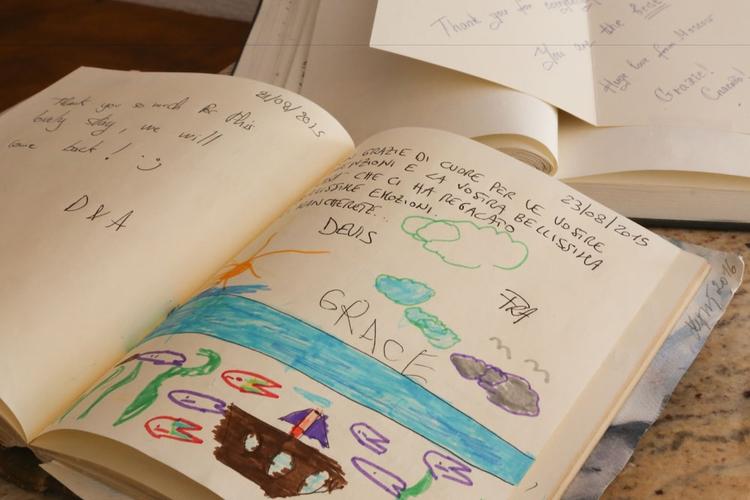 21/08/2015
Thank you so much for this
lovely stay, we will
come back! :-)
D & A
23/08/2015
GRAZIE DI CUORE PER LE VOSTRE
E LA VOSTRA BELLISSIMA
CHE CI HA REGALATO
EMOZIONI.
DEVIS
FRA
GRACE
Thank you for
You are the best
Huge love from Moscow
Grazie!